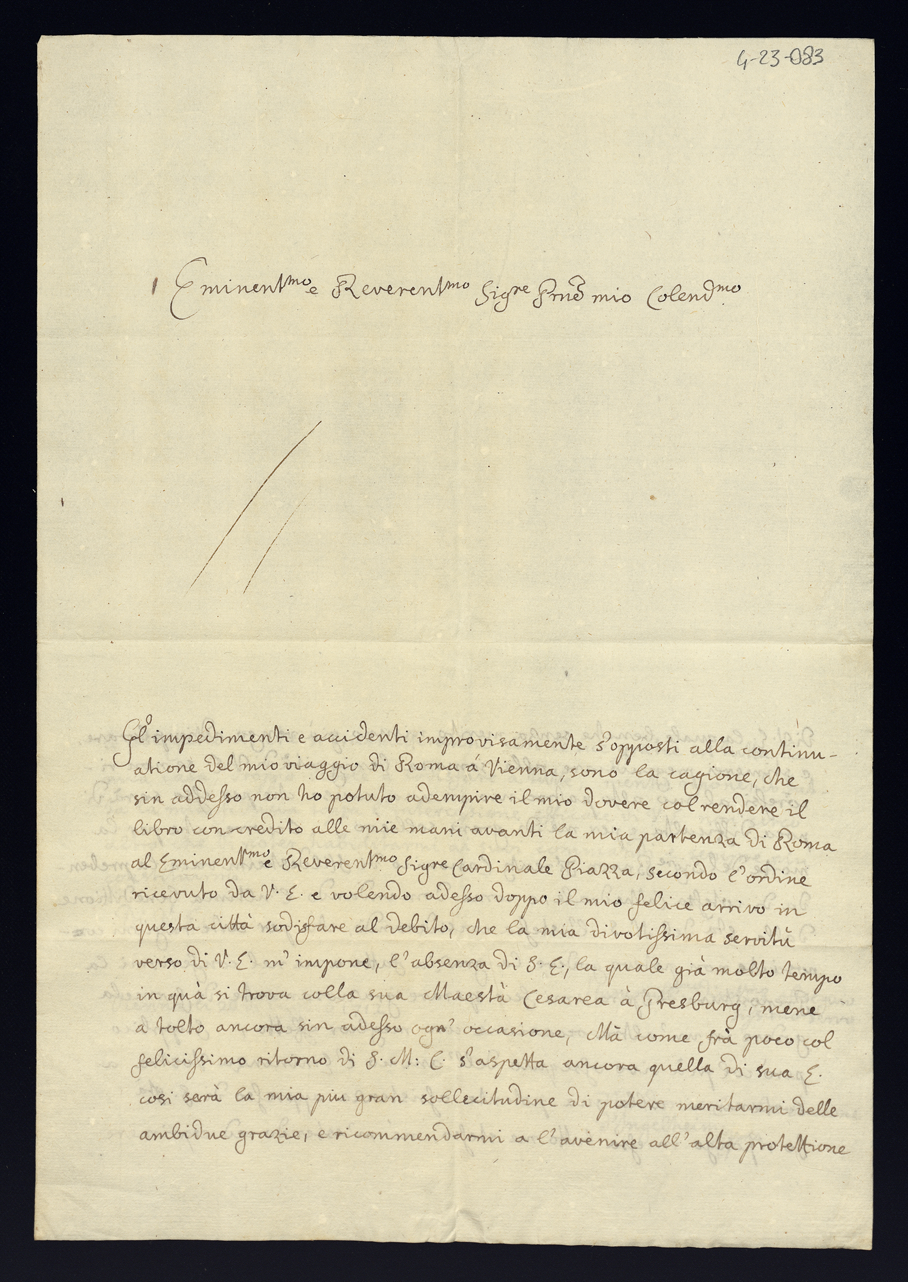 4-23-083
Eminent.mo e Reverent.mo Sig.re Prne mio Colend.mo
Gl'impedimenti e accidenti improvisamente s'opposti alla continu-
atione del mio viaggio di Roma á Vienna, sono la cagione, che
sin addesso non ho potuto adempire il mio dovere col rendere il
libro con credito alle miie mani avanti la mia partenza di Roma
al Eminent.mo e Reverent.mo Sigre Cardinale Piazza, secondo l'ordine
ricevuto da V. E. e volendo adesso doppo il mio felice arrivo in
questa città sodisfare al debito, che la mia divotissima servitù
verso di V. E. m'impone, l'absenza di S. E., la quale già molto tempo
in quà si trova colla sua Maestà Cesarea à Presburg, mene
à tolto ancora sin adesso ogn'occasione, Mà come frà poco col
felicissimo ritorno di S. M: C. s'aspetta ancora quella di sua E.
cosi serà la mia piu gran sollecitudine di potere meritarmi delle
ambidue grazie, e ricommendarmi a l'avenire all'alta protettione